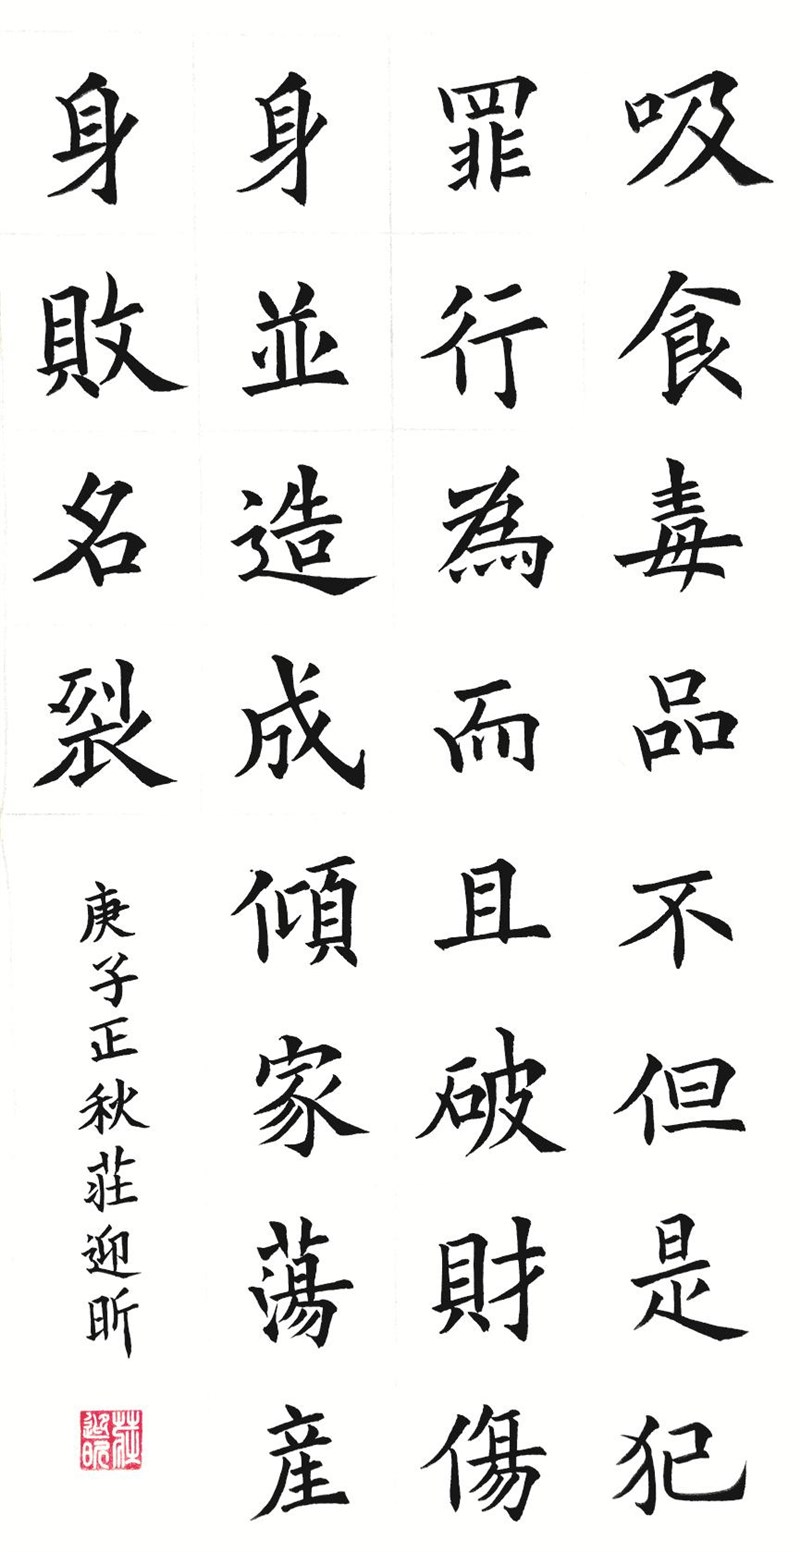 吸食毒品不但是犯
罪行為而且破財傷
身並造成傾家蕩産
身敗名裂
庚子正秋莊迎昕
莊迎昕